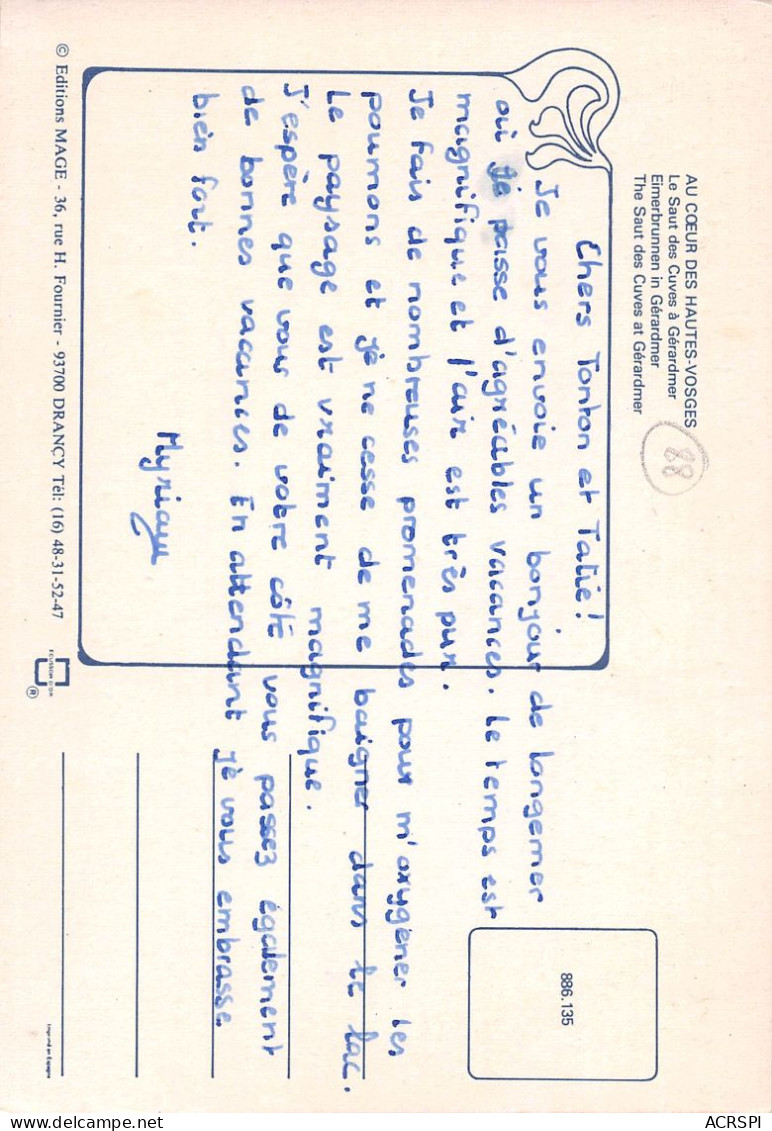 AU CŒUR DES HAUTES-VOSGES
Le Saut des Cuves à Gérardmer
Eimerbrunnen in Gérardmer
The Saut des Cuves at Gérardmer
88
Chers Tonton et Tatie!
Je vous envoie un bonjour de Longemer
où je passe d'agréables vacances. Le temps est
magnifique et l'air est très pur.
Je fais de nombreuses promenades pour m'oxygéner les
poumons et je ne cesse de me baigner dans le lac.
Le paysage est vraiment magnifique.
J'espère que vous de votre côté vous passez également
de bonnes vacances. En attendant je vous embrasse
bien fort.
Myriam
886.135
© Editions MAGE - 36, rue H. Fournier - 93700 DRANCY Tél: (16) 48-31-52-47
ECUSSON D'OR
®
Imprimé en Espagne
ACRSPI